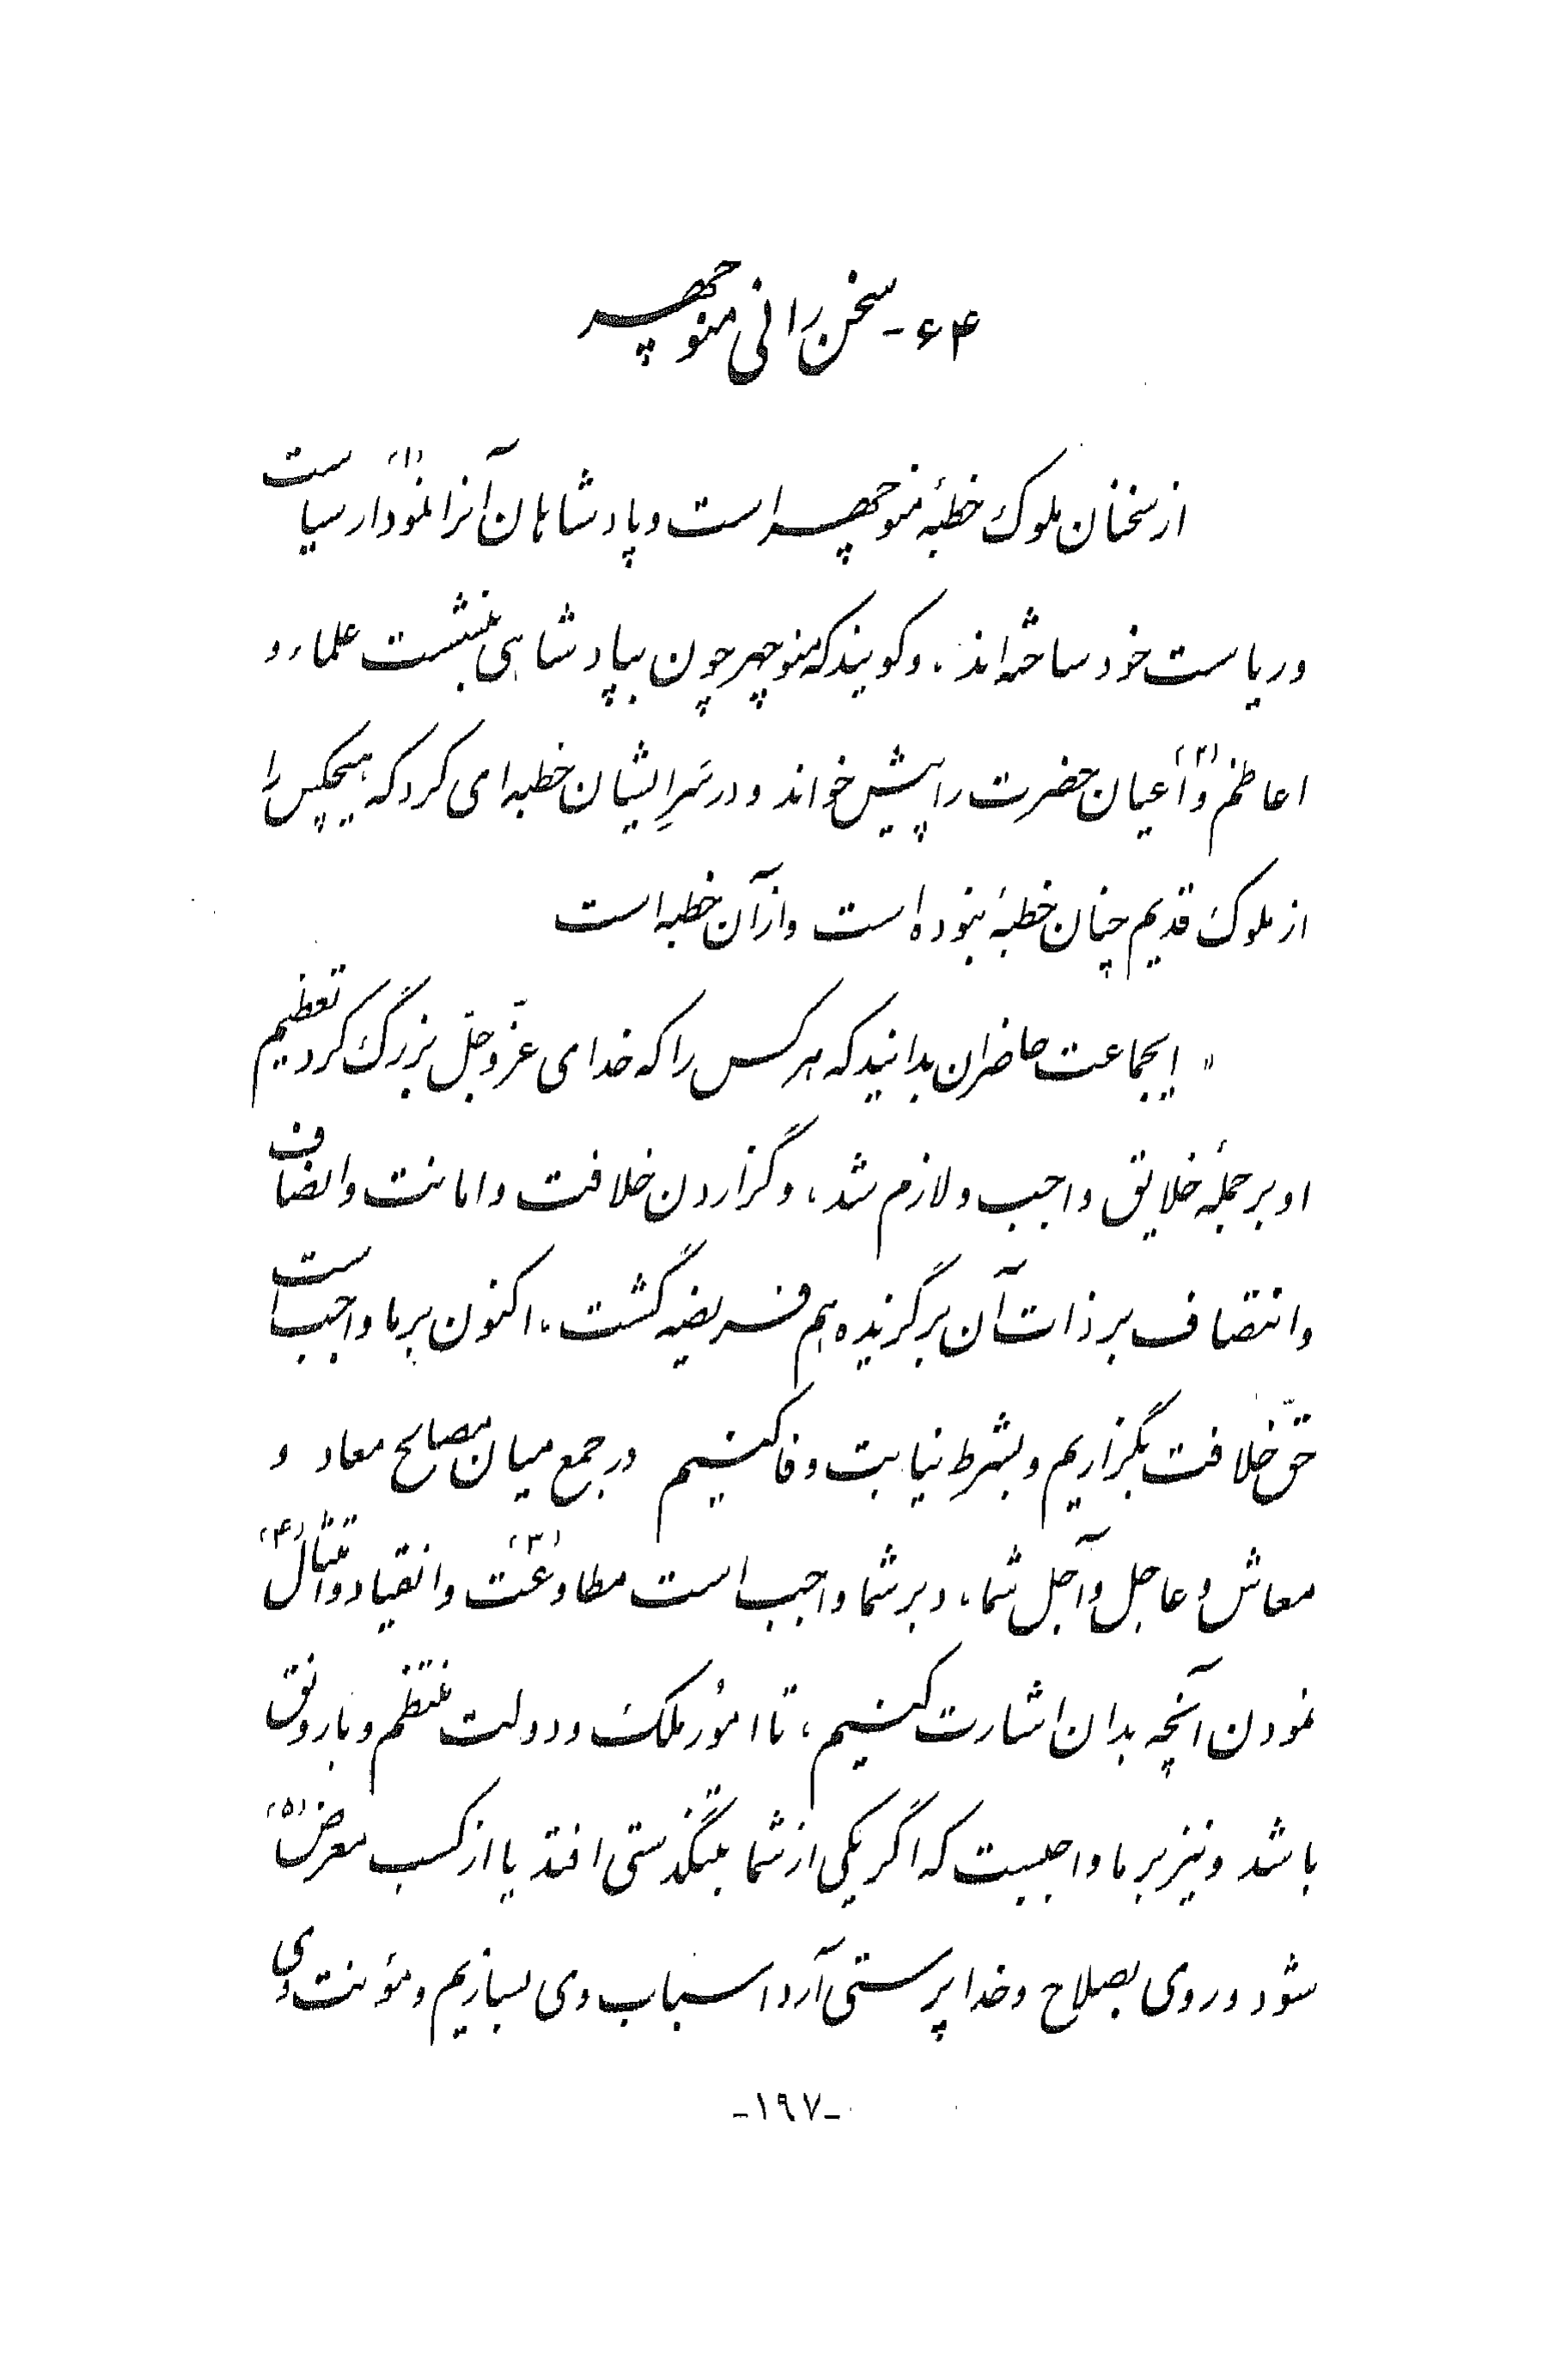 ۶۴- سخن رانی منوچهر
از سخنان ملوک خطبهٔ منوچهر است و پادشاهان آنرا نمودار(۱) سیاست
و ریاست خود ساخته‌اند، و گویند که منوچهر چون بپادشاهی بنشست علماء و
اعاظم و اعیان(۲) حضرت را پیش خواند و در سَرِ ایشان خطبه‌ای کرد که هیچکس را
از ملوک قدیم چنان خطبهٔ نبوده است و از آن خطبه است
« ایجماعت حاضران بدانید که هر کس را که خدای عزّ و جلّ بزرگ کرد تعظیم
او بر جملهٔ خلایق واجب و لازم شد، و گزاردن خلافت و امانت و انصاف
و انتصاف بر ذات آن برگزیده هم فریضه گشت، اکنون بر ما واجب است
حقّ خلافت بگزاریم و بشرط نیابت وفا کنیم در جمع میان مصالح معاد و
معاش و عاجل و آجل شما، و بر شما واجب است مطاوعَت(۳) و انقیاد و امتثال(۴)
نمودن آنچه بدان اشارت کنیم، تا امُور ملک و دولت منتظم و با رونق
باشد و نیز بر ما واجبست که اگر یکی از شما بتنگدستی افتد یا از کسب معرض(۵)
شود و روی بصلاح و خدا پرستی آرد اسباب وی بسازیم و مؤنت وی
-۱۹۷-